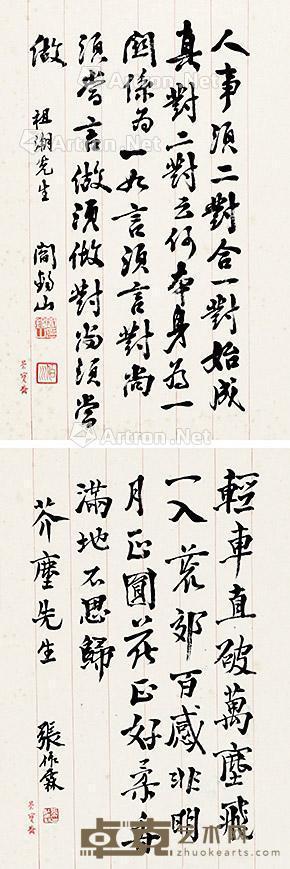 人事須二對合一對始成
真對二對云何本身為一
關係為一如言須言對尚
須當言做須做對尚須當
做
祖湖先生 閻錫山
Artron.Net
輕車直破萬塵飛
一入荒郊百感非明
月正圓花正好
滿地不思歸
芥塵先生 張作霖
卓克艺术网
www.zhuokearts.com